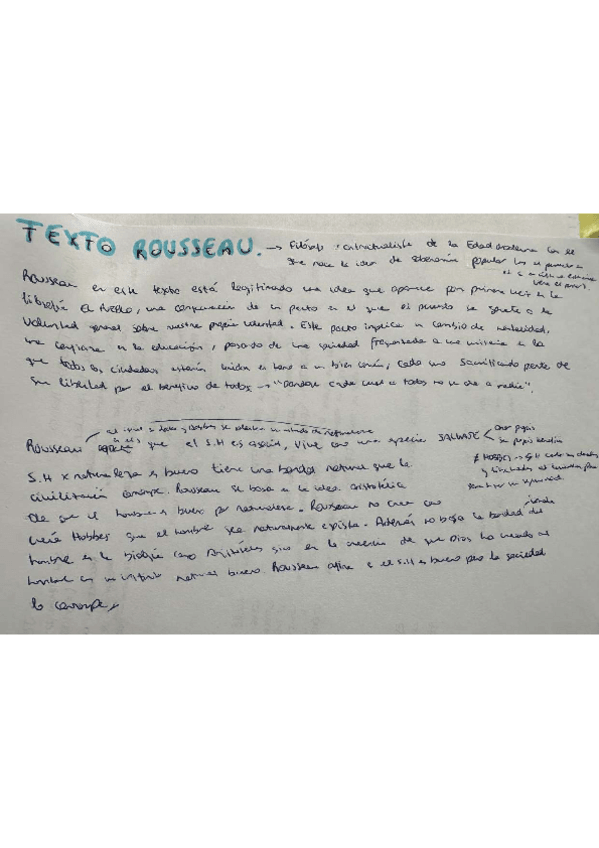 TEXTO ROUSSEAU. → Filósofo contractualista de la Edad Moderna con el
que nace la idea de soberanía popular
Rousseau en este texto está legitimando una idea que aparece por primera vez en la
filosofía El Pueblo, una consecuencia de un pacto en el que el pueblo se somete a la
voluntad general sobre nuestra propia voluntad. Este pacto implica un cambio de mentalidad,
una confianza en la educación, pasando de una sociedad fragmentada a una unitaria en la
que todos los ciudadanos estarán unidos en base a un bien común, cada uno sacrificando parte de
su libertad por el beneficio de todos → "dándose cada cual a todos no se da a nadie".
al igual se establece un estado de naturaleza
Rousseau que el S.H es asocial, vive como una especie SALVAJE
≠ HOBBES →
S.H x naturaleza es bueno tiene una bondad natural que la
civilización corrompe. Rousseau se basa en la idea aristotélica
de que el hombre es bueno por naturaleza. Rousseau no cree como
creía Hobbes que el hombre sea naturalmente egoísta. Además no basa la bondad del
hombre en la biología como Aristóteles sino en la creencia de que Dios ha creado al
hombre con un instinto natural bueno. Rousseau afirma q el S.H es bueno pero la sociedad
lo corrompe